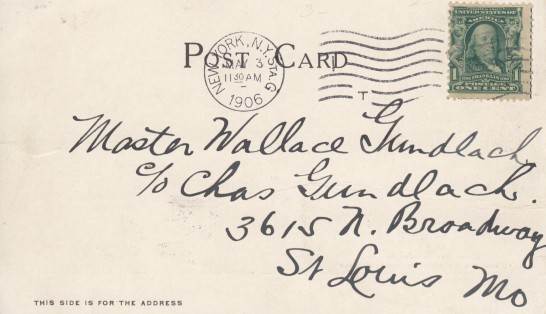 POST CARD
NEW YORK, N.Y. STA. G
MAR 3
11 30 AM
1906
T
UNITED STATES OF AMERICA
1
FRANKLIN
POSTAGE
ONE CENT
Master Wallace Gundlach
c/o Chas Gundlach.
3615 N. Broadway
St Louis Mo
THIS SIDE IS FOR THE ADDRESS